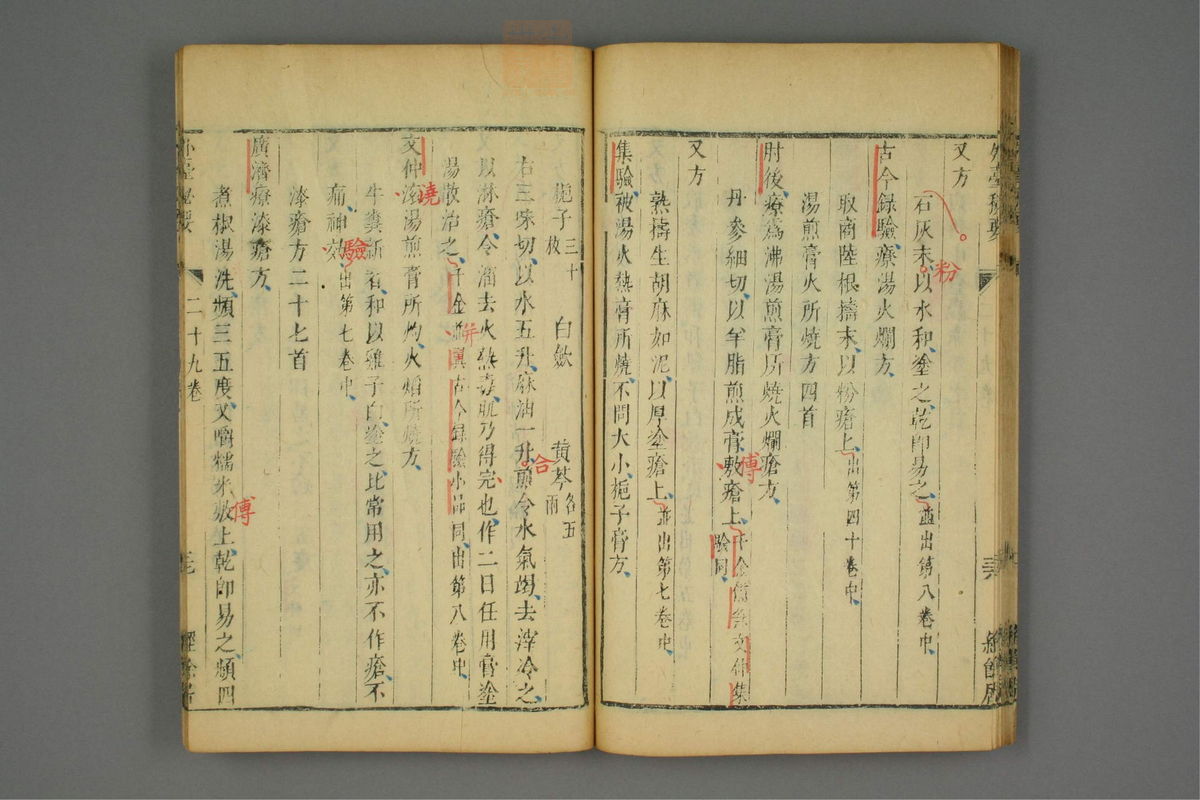 外臺秘要
又方
石灰末以水和塗之乾即易之並出第八卷中
粉
古今録驗療湯火爛方
取商陸根擣末以粉瘡上出第四十卷中
湯煎膏火所燒方四首
肘後療爲沸湯煎膏所燒火爛瘡方
丹參細切以羊脂煎成膏敷瘡上千金備急文仲集驗同
傅
又方
熟擣生胡麻如泥以厚塗瘡上並出第七卷中
集驗被湯火熱膏所燒不問大小梔子膏方
梔子三十枚 白斂 黄芩各五兩
右三味切以水五升麻油一升煎令水氣竭去滓冷之
合
以淋瘡令溜去火熱毒肌乃得完也作二日任用膏塗
湯散治之千金並翼古今録驗小品同出第八卷中
并
文仲湯煎膏所灼火爛所燒方
澆
牛糞新者和以雞子白塗之比常用之亦不作瘡不
痛神效出第七卷中
驗
漆瘡方二十七首
廣濟療漆瘡方
煮椒湯洗頻三五度又嚼糯米敷上乾即易之頻四
傅
外臺秘要
二十九卷
經餘居